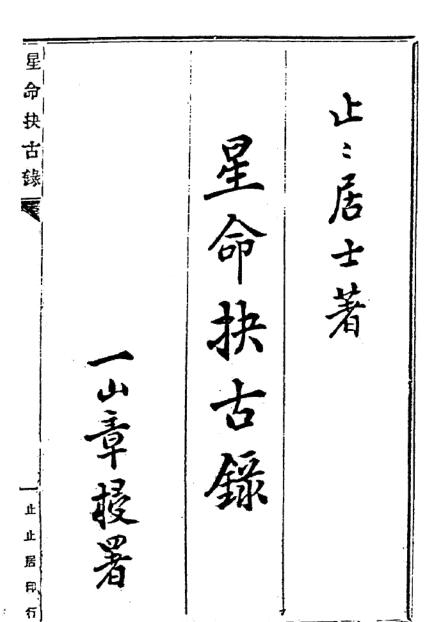 止〻居士著
星命抉古錄
一山章梫署
星命抉古錄
一
止止居印行